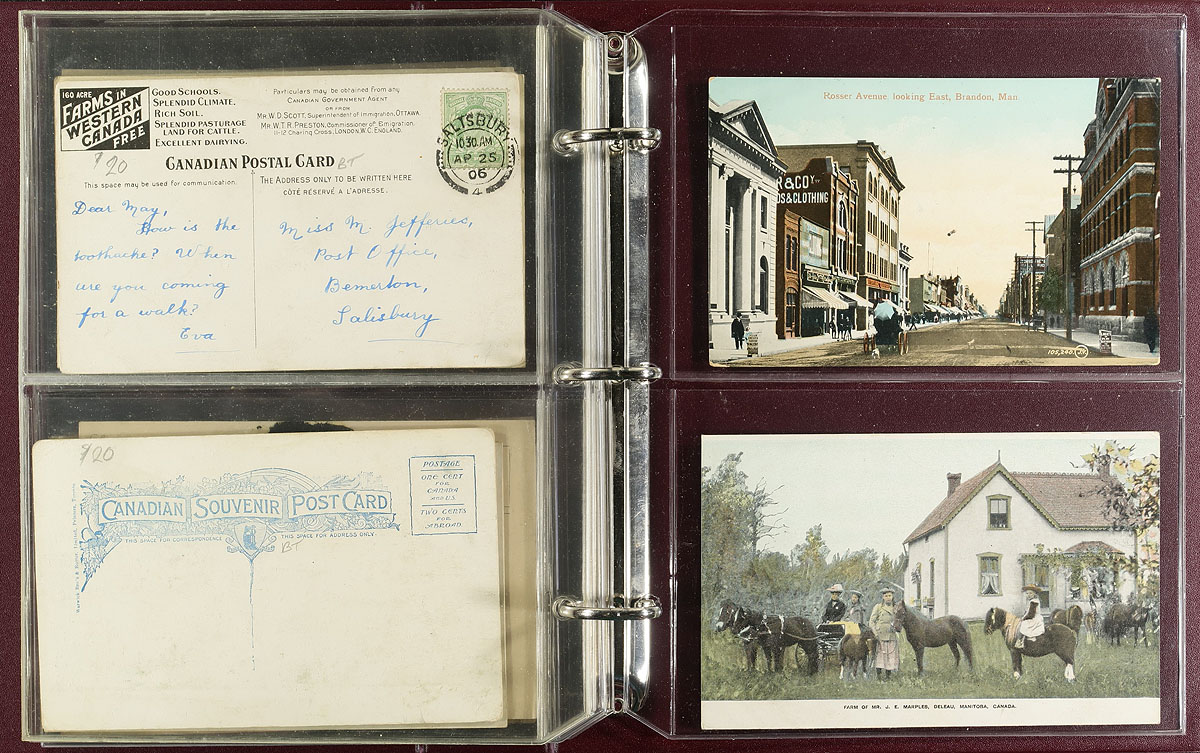 160 ACRE
FARMS IN
WESTERN
CANADA
FREE
GOOD SCHOOLS.
SPLENDID CLIMATE.
RICH SOIL.
SPLENDID PASTURAGE
LAND FOR CATTLE.
EXCELLENT DAIRYING.
Particulars may be obtained from any
CANADIAN GOVERNMENT AGENT
OR FROM
MR.W.D.SCOTT, Superintendent of Immigration, OTTAWA.
MR.W.T.R.PRESTON, Commissioner of Emigration.
11-12 Charing Cross, LONDON, W.C. ENGLAND.
SALISBURY
10 30 AM
AP 25
06
4
$20
CANADIAN POSTAL CARD
BT
This space may be used for communication.
THE ADDRESS ONLY TO BE WRITTEN HERE
CÔTÉ RÉSERVÉ A L'ADRESSE.
Dear May,
How is the
toothache? When
are you coming
for a walk?
Eva
Miss M. Jefferies,
Post Office,
Bemerton,
Salisbury
$20
CANADIAN SOUVENIR POST CARD
THIS SPACE FOR CORRESPONDENCE
THIS SPACE FOR ADDRESS ONLY
BT
POSTAGE
ONE CENT
FOR
CANADA
AND U.S.
TWO CENTS
FOR
ABROAD.
Rosser Avenue, looking East, Brandon, Man.
R & COY
DS & CLOTHING
105,240.
JV
FARM OF MR. J. E. MARPLES, DELEAU, MANITOBA, CANADA.